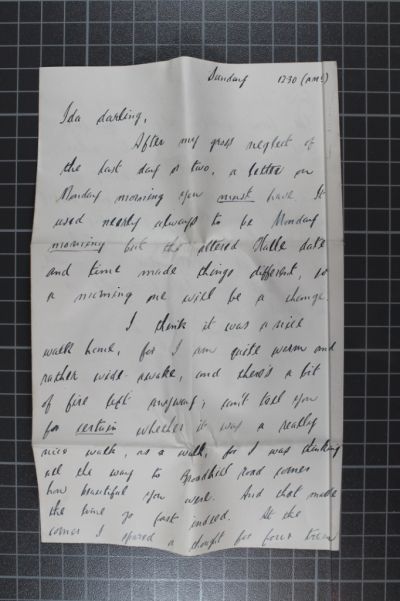 Sunday 12.30 (a.m!)
Ida darling,
After my gross neglect of
the last day or two, a letter on
Monday morning you must have. It
used nearly always to be Monday
morning but the altered Hallé date
and time made things different, so
a morning one will be a change.
I think it was a nice
walk home, for I am quite warm and
rather wide-awake, and there's a bit
of fire left anyway; can't tell you
for certain whether it was a really
nice walk, as a walk, for I was thinking
all the way to Broadhill road corner
how beautiful you were. And that made
the time go fast indeed. At the
corner I spared a thought for